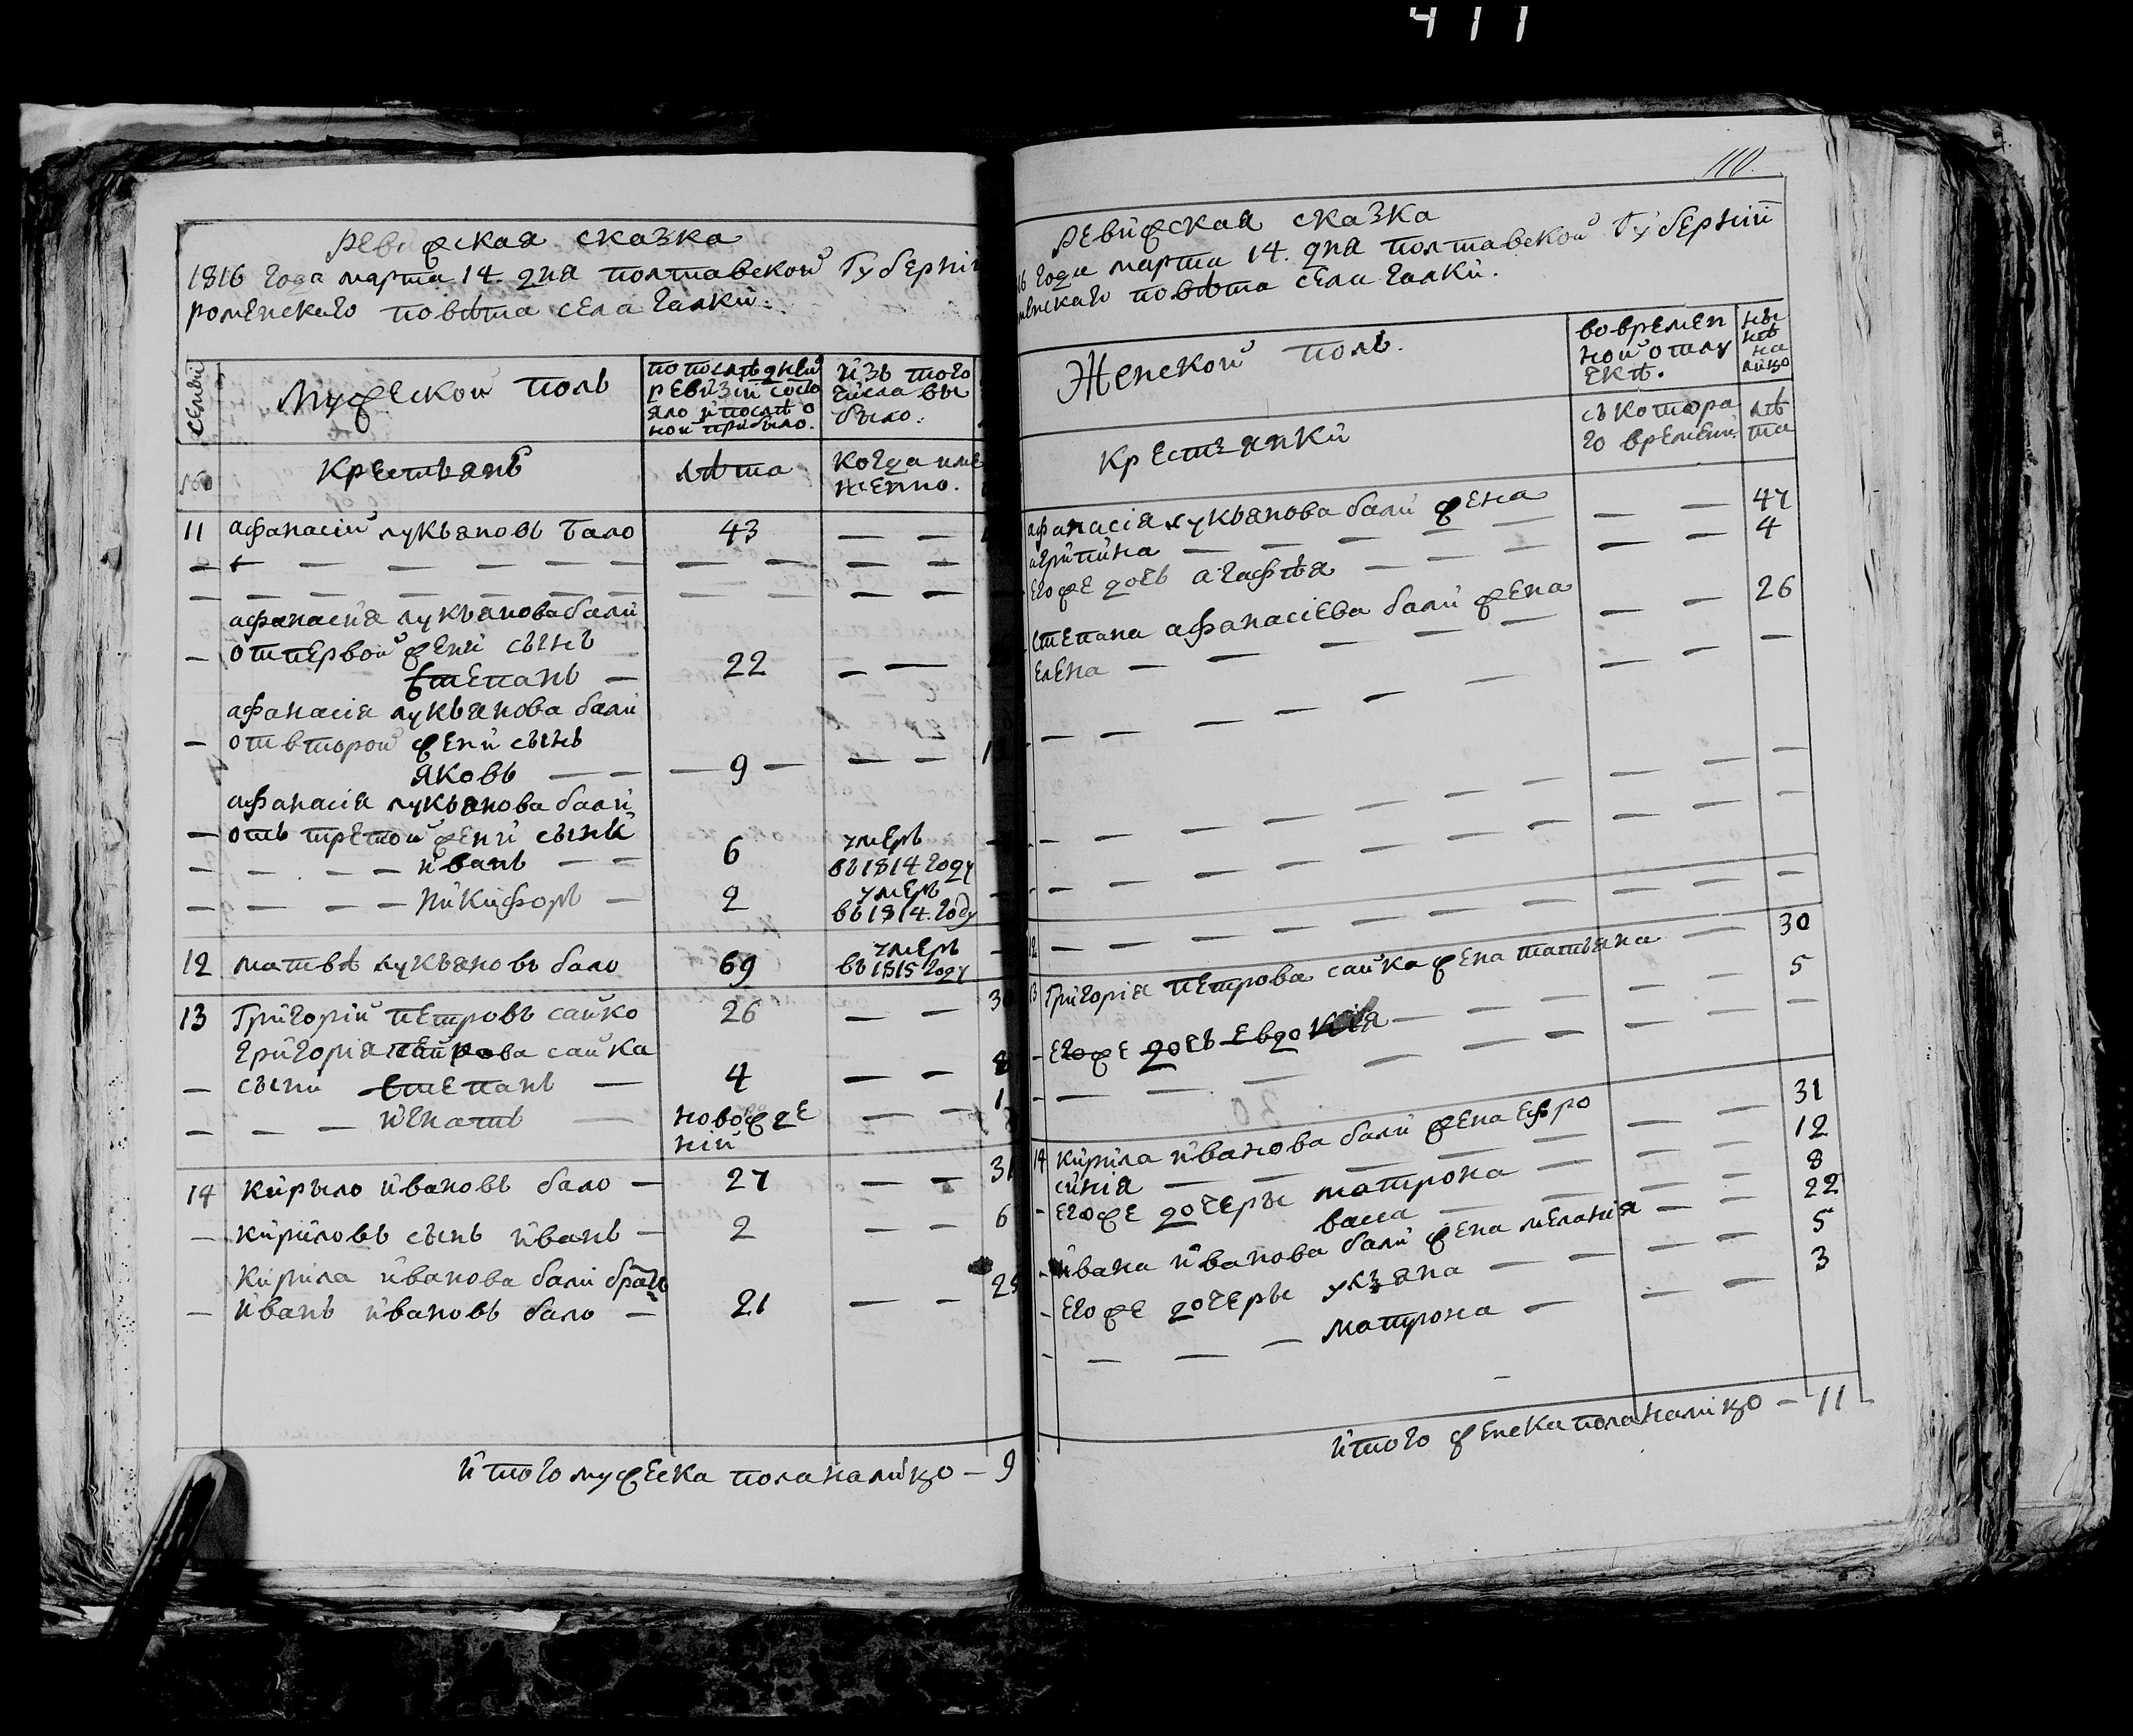 411
110.
Ревижская сказка
1816 года марта 14. дня полтавской Губерніи
роменскаго повѣта села галки.
семьи
Мужеской полъ
по послѣдней
ревизіи состо
яло и послѣ о
ной прибыло.
изъ того
числа вы
было.
Крестьянѣ
лѣта
когда име
нженно.
11 афанасій лукьяновъ бало 43 — —
афанасия лукьянова бали
— отпервой жени сынъ
Степанъ — 22 — —
афанасія лукьянова бали
— отвторой жени сынъ
яковъ — — — 9 — — —
афанасія лукьянова бали
— отъ третой жени сыни
— — — — иванъ — — 6 умеръ въ 1814 году
— — — — никифоръ — 2 умеръ въ 1814. году
12 матвѣ лукьяновъ бало 69 умеръ въ 1815 году
13 Григорій петровъ сайко 26 — — 30
григорія сайка
— сыни Степанъ — 4 — — 8
— — — игнатъ — новожде — — 1
ній
14 кирыло ивановъ бало — 27 — — 31
— кириловъ сынъ иванъ — 2 — — 6
Кирила иванова бали братъ
— иванъ ивановъ бало — 21 — — 25
итого мужеска пола налицо — 9
Ревижская сказка
16 года марта 14. дня полтавской Губерніи
менскаго повѣта села галки.
Женской полъ.
во времен
ной отлу
чкѣ.
ны
нѣ
на
лицо
Крестьянки
съ котора
го времени.
лѣ
та
афанасія лукьянова бали жена
агрипина — — — — — — — 47
егоже дочь агафѣя — — — — 4
степана афанасіева бали жена
елена — — — — — — — 26
12 — — — — — — — —
13 Григорія петрова сайка жена татьяна — 30
— егоже дочь евдокія — — — 5
14 кирила иванова бали жена ефро
синія — — — — — — 31
— егоже дочеры матрона — — — 12
васса — — — 8
— ивана иванова бали жена меланія — — 22
— егоже дочеры ульяна — — — 5
— — — — матрона — — — 3
итого женска пола налицо — 11